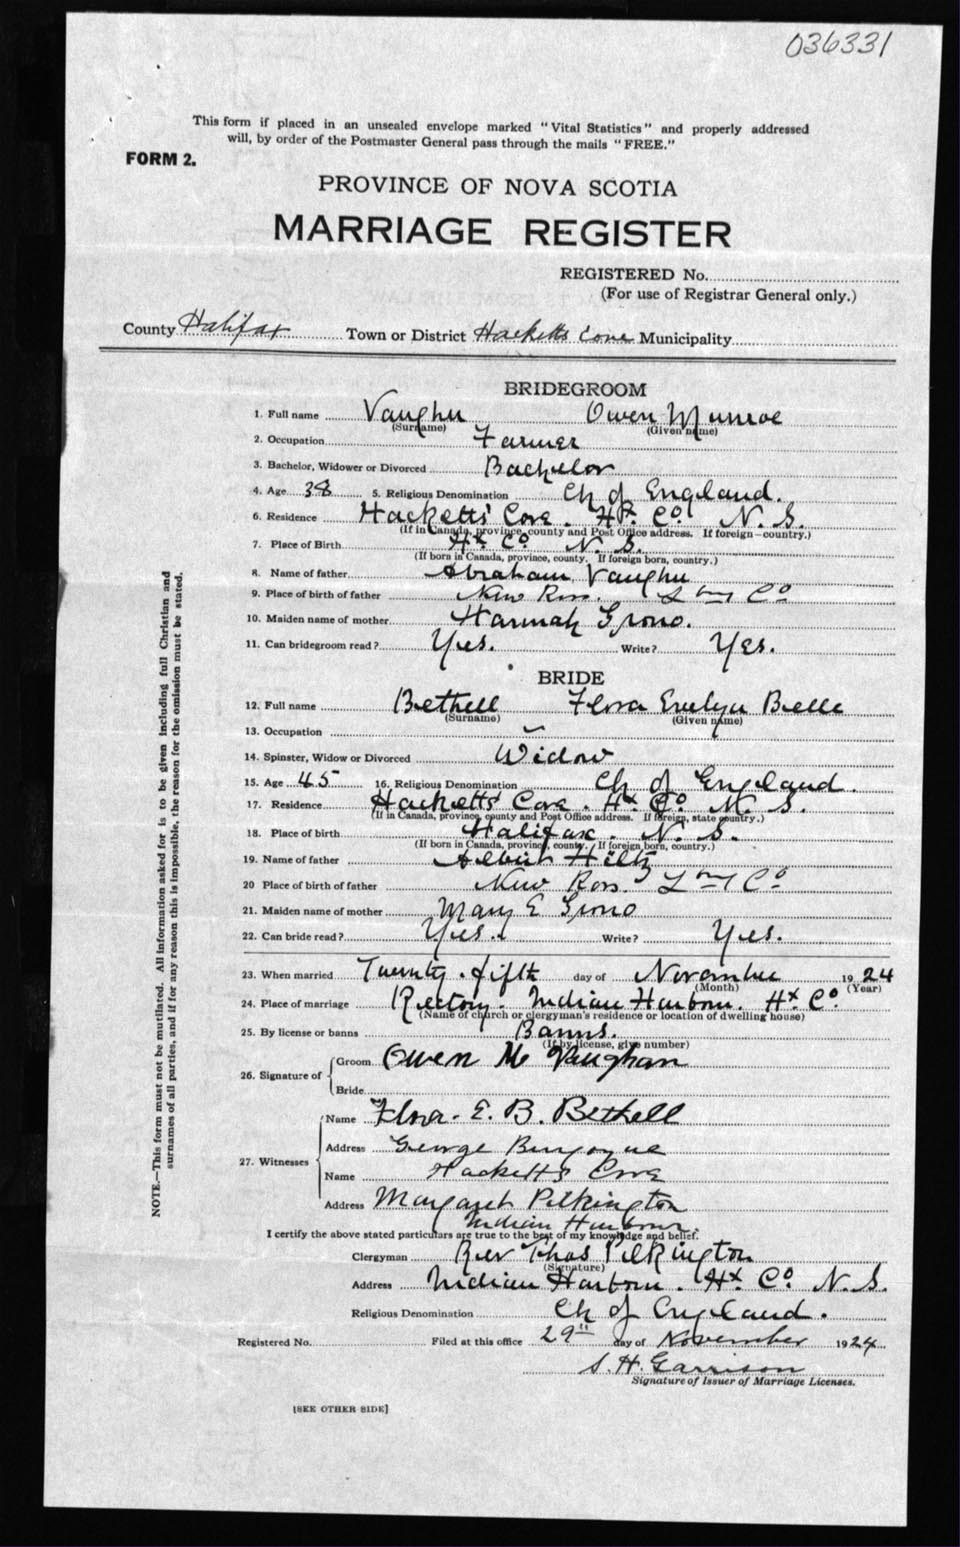 036331
This form if placed in an unsealed envelope marked "Vital Statistics" and properly addressed
will, by order of the Postmaster General pass through the mails "FREE."
FORM 2.
PROVINCE OF NOVA SCOTIA
MARRIAGE REGISTER
REGISTERED No.
(For use of Registrar General only.)
County Halifax Town or District Hacketts Cove Municipality
BRIDEGROOM
1. Full name Vaughn Owen Munroe
(Surname) (Given name)
2. Occupation Farmer
3. Bachelor, Widower or Divorced Bachelor
4. Age 38 5. Religious Denomination Ch of England.
6. Residence Hacketts' Cove. Hx. Co. N. S.
(If in Canada, province, county and Post Office address. If foreign—country.)
7. Place of Birth Hx Co N. S.
(If born in Canada, province, county. If foreign born, country.)
8. Name of father Abraham Vaughn
9. Place of birth of father New Ross. Co
10. Maiden name of mother Hannah Grono.
11. Can bridegroom read? Yes. Write? Yes.
BRIDE
12. Full name Bethell Flora Evelyn Belle
(Surname) (Given name)
13. Occupation
14. Spinster, Widow or Divorced Widow
15. Age 45 16. Religious Denomination Ch of England.
17. Residence Hacketts' Cove. Hx Co N. S.
(If in Canada, province, county and Post Office address. If foreign, state country.)
18. Place of birth Halifax. N. S.
(If born in Canada, province, county. If foreign born, country.)
19. Name of father Albert Hiltz
20 Place of birth of father New Ross. Co
21. Maiden name of mother Mary E Grono
22. Can bride read? Yes. Write? Yes.
23. When married Twenty. fifth day of November 1924
(Month) (Year)
24. Place of marriage Rectory. Indian Harbour. Hx Co.
(Name of church or clergyman's residence or location of dwelling house)
25. By license or banns Banns.
(If by license, give number)
26. Signature of Groom Owen M Vaughan
Bride
27. Witnesses Name Flora. E. B. Bethell
Address George Burgoyne
Name Hacketts Cove
Address Margaret Pilkington
Indian Harbour.
I certify the above stated particulars are true to the best of my knowledge and belief.
Clergyman Rev Thos Pilkington
(Signature)
Address Indian Harbour. Hx Co. N. S.
Religious Denomination Ch of England.
Registered No. Filed at this office 29" day of November 1924
S. H. Garrison
Signature of Issuer of Marriage Licenses.
[SEE OTHER SIDE]
NOTE.—This form must not be mutilated. All information asked for is to be given including full Christian and
surnames of all parties, and if for any reason this is impossible, the reason for the omission must be stated.